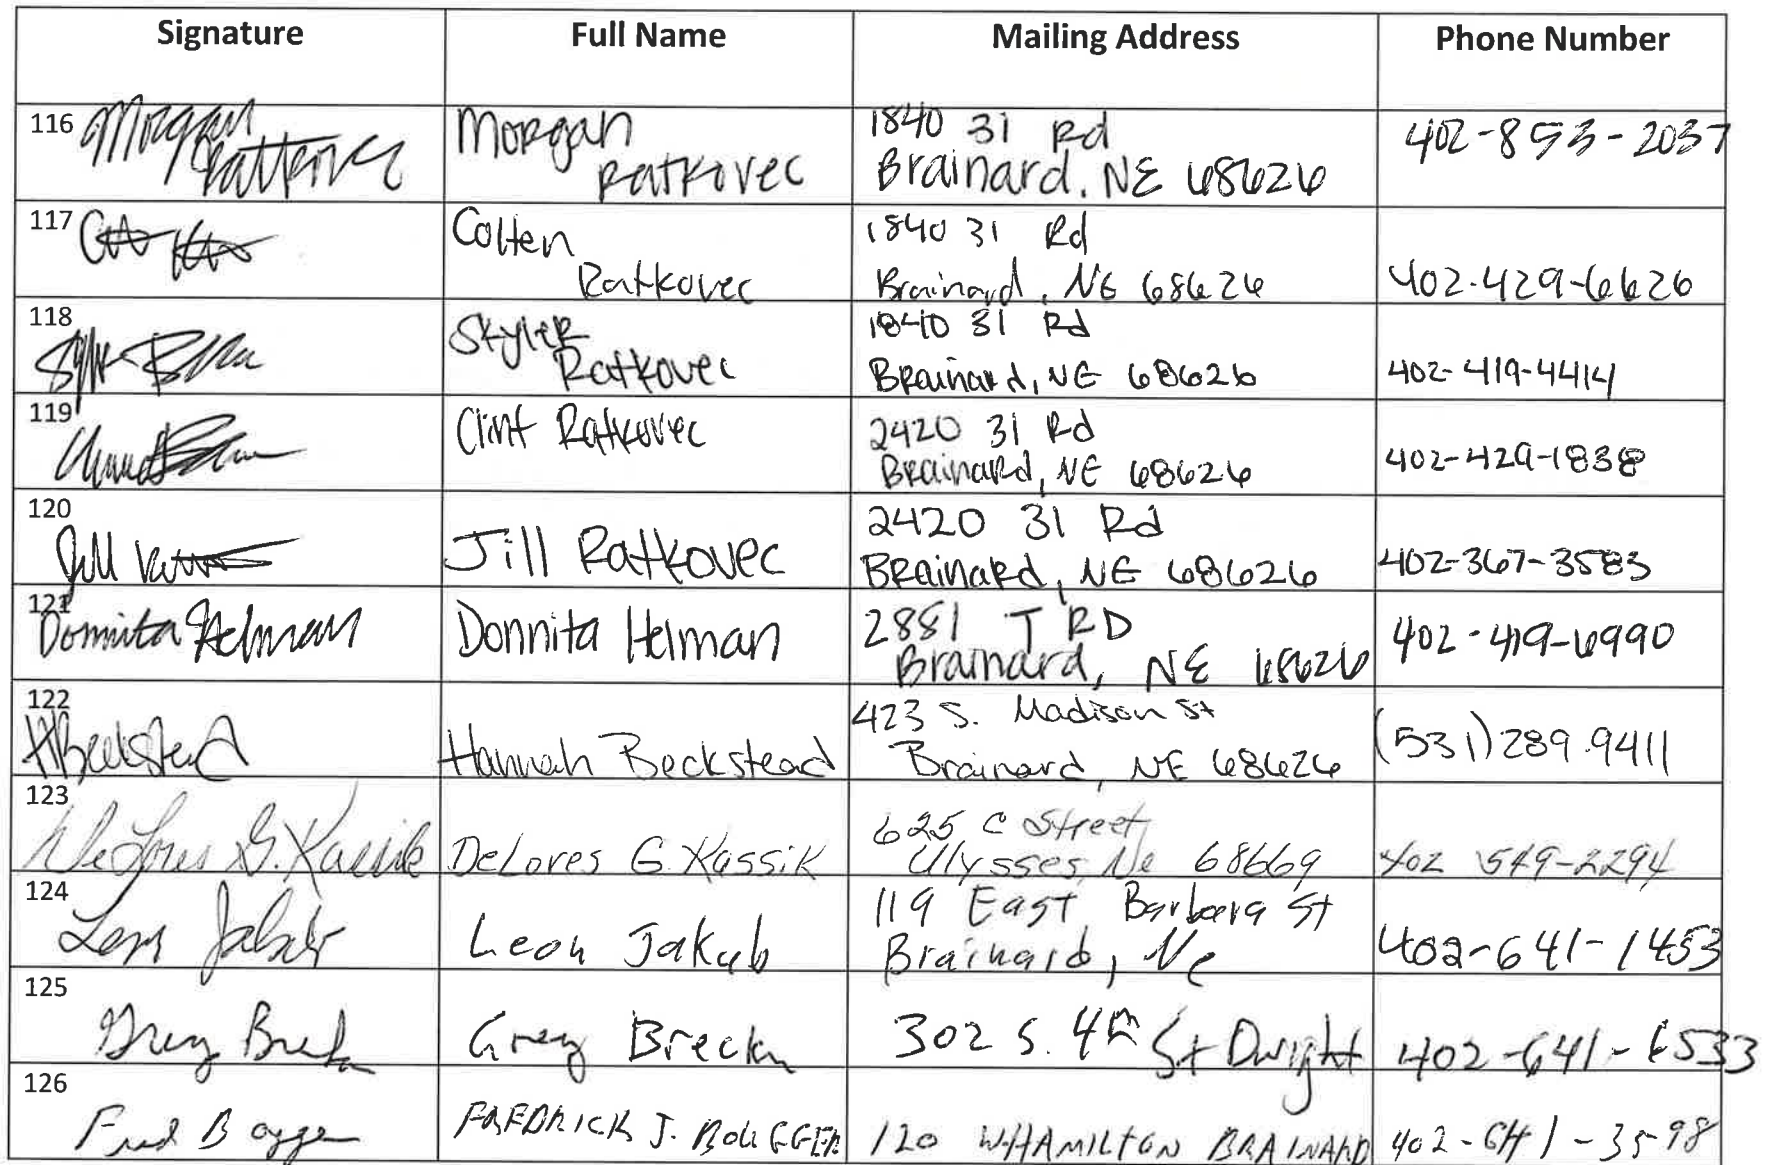 Signature Full Name Mailing Address Phone Number
116 Morgan Ratkovec Morgan Ratkovec 1840 31 Rd Brainard, NE 68626 402-853-2037
117 Colten Ratkovec 1840 31 Rd Brainard, NE 68626 402-429-6626
118 Skyler Ratkovec 1840 31 Rd Brainard, NE 68626 402-419-4414
119 Clint Ratkovec 2420 31 Rd Brainard, NE 68626 402-429-1838
120 Jill Jill Ratkovec 2420 31 Rd Brainard, NE 68626 402-367-3583
121 Donnita Helman Donnita Helman 2881 T RD Brainard, NE 68626 402-419-6990
122 HBeckstead Hannah Beckstead 423 S. Madison St Brainard, NE 68626 (531)289.9411
123 DeLores G. Kassik DeLores G. Kassik 625 C Street, Ulysses, Ne 68669 402 549-2294
124 Leon Jakub Leon Jakub 119 East Barbara St Brainard, Ne 402-641-1453
125 Greg Greg 302 S. 4th St Dwight 402-641-6533
126 Fred FREDRICK J. 120 W HAMILTON BRAINARD 402-641-3598